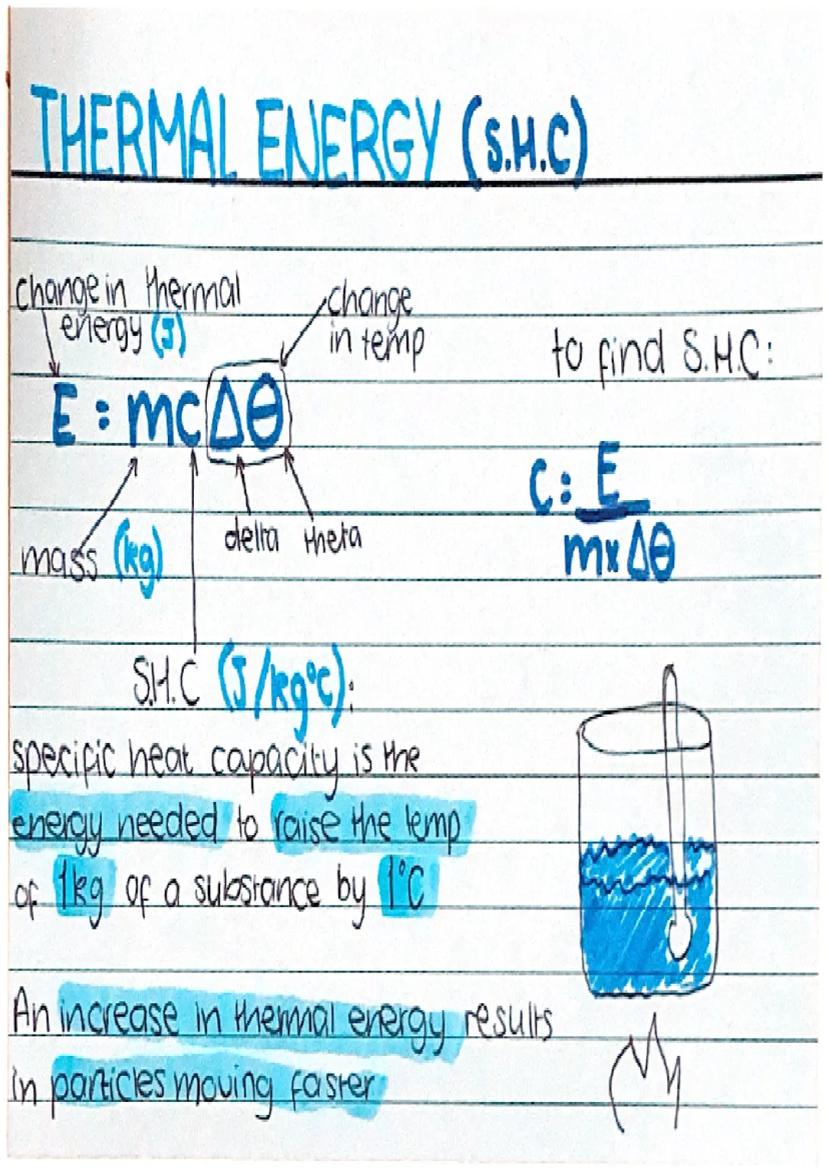 THERMAL ENERGY (S.H.C)
change in thermal
energy (J)
change
in temp
E = mcΔθ
mass (kg)
delta theta
S.H.C (J/kg°C):
to find S.H.C:
C = E
m x Δθ
specific heat capacity is the
energy needed to raise the temp
of 1kg of a substance by 1°C
An increase in thermal energy results
in particles moving faster